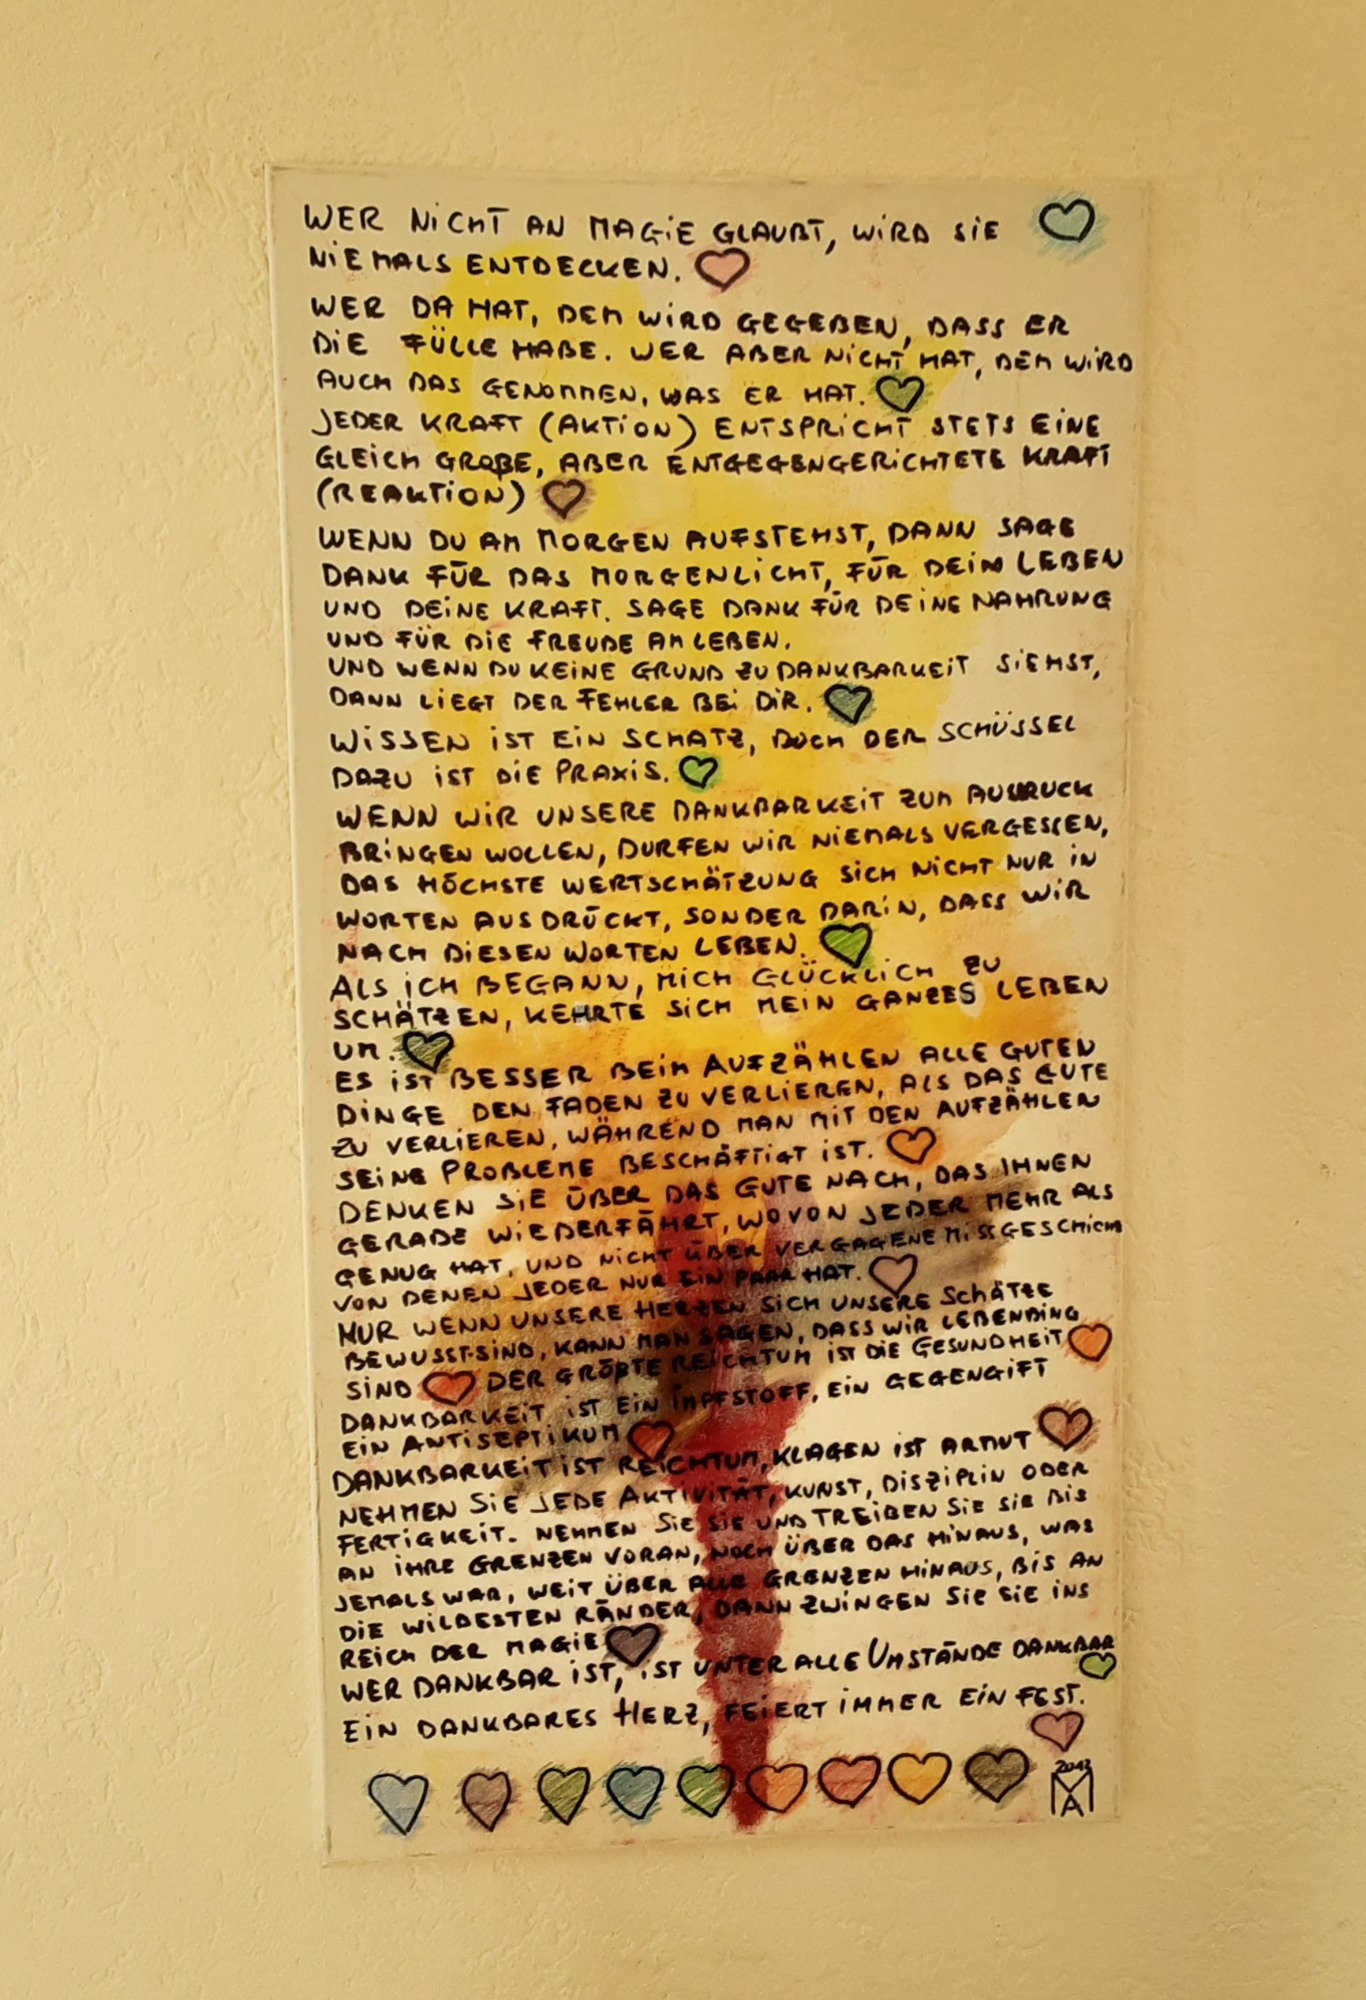 WER NiCHT AN MAGiE GLAUBT, WiRD SiE
NiEMALS ENTDECKEN.
WER DA HAT, DEM WiRD GEGEBEN, DASS ER
DiE FÜLLE HABE. WER ABER NiCHT HAT, DEM WiRD
AUCH DAS GENOMMEN, WAS ER HAT.
JEDER KRAFT (AKTiON) ENTSPRiCHT STETS EiNE
GLEiCH GROßE, ABER ENTGEGENGERiCHTETE KRAFT
(REAKTiON)
WENN DU AM MORGEN AUFSTEHST, DANN SAGE
DANK FÜR DAS MORGENLiCHT, FÜR DEiN LEBEN
UND DEiNE KRAFT. SAGE DANK FÜR DEiNE NAHRUNG
UND FÜR DiE FREUDE AM LEBEN.
UND WENN DU KEiNE GRUND ZU DANKBARKEiT SiEHST,
DANN LiEGT DER FEHLER BEi DiR.
WiSSEN iST EiN SCHATZ, DOCH DER SCHÜSSEL
DAZU iST DiE PRAXiS.
WENN WiR UNSERE DANKBARKEiT ZUM AUSDRUCK
BRiNGEN WOLLEN, DÜRFEN WiR NiEMALS VERGESSEN,
DAS HÖCHSTE WERTSCHÄTZUNG SiCH NiCHT NUR iN
WORTEN AUSDRÜCKT, SONDER DARiN, DASS WiR
NACH DiESEN WORTEN LEBEN.
ALS iCH BEGANN, MiCH GLÜCKLiCH ZU
SCHÄTZEN, KEHRTE SiCH MEiN GANZES LEBEN
UM.
ES iST BESSER BEiM AUFZÄHLEN ALLE GUTEN
DiNGE DEN FADEN ZU VERLiEREN, ALS DAS GUTE
ZU VERLiEREN, WÄHREND MAN MiT DEN AUFZÄHLEN
SEiNE PROBLEME BESCHÄFTiGT iST.
DENKEN SiE ÜBER DAS GUTE NACH, DAS IHNEN
GERADE WiEDERFÄHRT, WOVON JEDER MEHR ALS
GENUG HAT, UND NiCHT ÜBER VERGAGENE MiSSGESCHiCKE
VON DENEN JEDER NUR EiN PAAR HAT.
NUR WENN UNSERE HERZEN SiCH UNSERE SCHÄTZE
BEWUSST SiND, KANN MAN SAGEN, DASS WiR LEBENDiNG
SiND DER GRÖßTE REiCHTUM iST DiE GESUNDHEiT
DANKBARKEiT iST EiN IMPFSTOFF, EiN GEGENGiFT
EiN ANTiSEPTiKUM
DANKBARKEiT iST REiCHTUM, KLAGEN iST ARMUT
NEHMEN SiE JEDE AKTiViTÄT, KUNST, DiSZiPLiN ODER
FERTiGKEiT. NEHMEN SiE SiE UND TREiBEN SiE SiE BiS
AN iHRE GRENZEN VORAN, NOCH ÜBER DAS HiNAUS, WAS
JEMALS WAR, WEiT ÜBER ALLE GRENZEN HiNAUS, BiS AN
DiE WiLDESTEN RÄNDER, DANN ZWiNGEN SiE SiE iNS
REiCH DER MAGiE
WER DANKBAR iST, iST UNTER ALLE UMSTÄNDE DANKBAR
EiN DANKBARES HERZ, FEiERT iMMER EiN FEST.